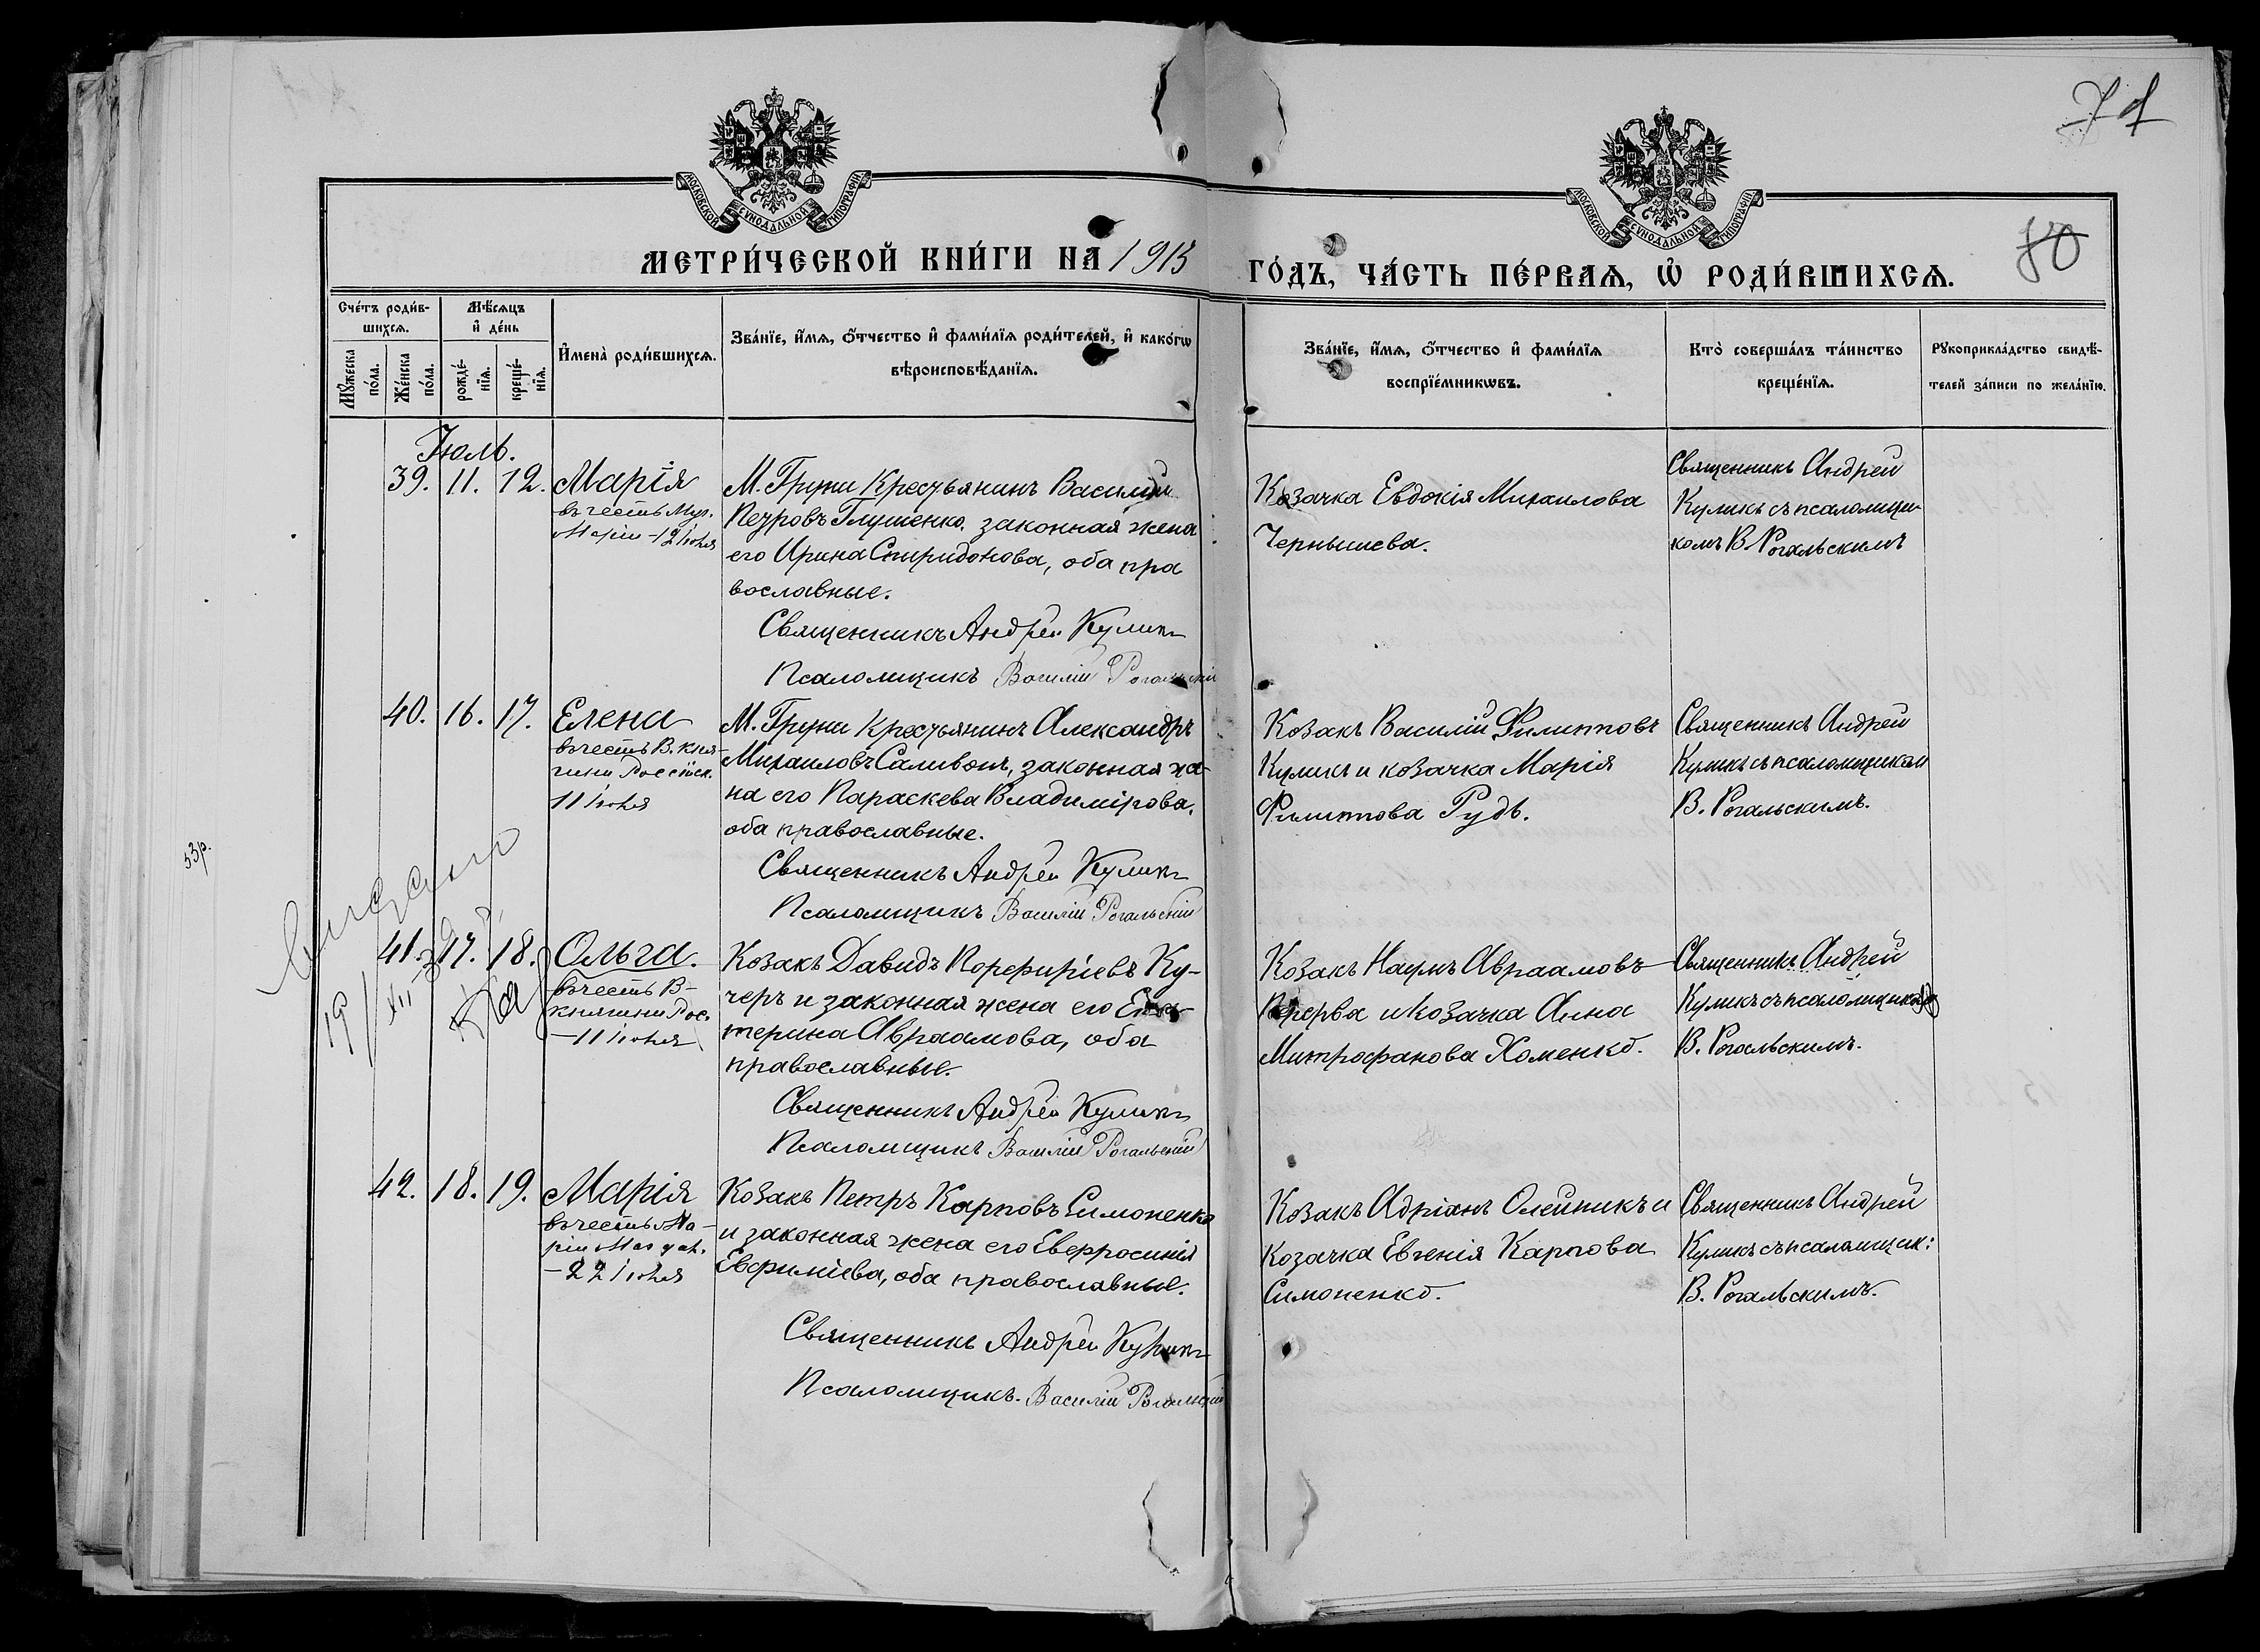 71
80
МОСКОВСКОЙ СѴНОДАЛЬНОЙ ТИПОГРАФІИ
МОСКОВСКОЙ СѴНОДАЛЬНОЙ ТИПОГРАФІИ
МЕТРИ́ЧЕСКОЙ КНИ́ГИ НА 1913 ГО́ДЪ, ЧА́СТЬ ПЕ́РВАѦ, Ѡ҆ РОДИ́ВШИХСѦ.
Сче́тъ роди́в-
шихсѧ.
Мꙋ́жеска
по́ла.
Же́нска
по́ла.
Мѣ́сѧцъ
и҆ де́нь
рожде́-
нїѧ.
креще́-
нїѧ.
И҆мена̀ роди́вшихсѧ.
Зва́нїе, и҆́мѧ, ѻ҆́тчество и҆ фами́лїѧ роди́телей, и҆ како́гѡ
вѣроисповѣ́данїѧ.
Зва́нїе, и҆́мѧ, ѻ҆́тчество и҆ фами́лїѧ
воспрїе́мникѡвъ.
Кто̀ соверша́лъ та́инство
креще́нїѧ.
Рꙋкоприкла́дство свидѣ́-
телей за́писи по жела́нїю.
Іюль.
39. 11. 12. Марія
въ честь Мул.
Маріи - 12 Іюля
М. Груни Крестьянинъ Василій
Петровъ Глущенко, законная жена
его Ирина Спиридонова, оба пра
вославные.
Священникъ Андрей Куликъ
Псаломщикъ Василій Рогальскій
Козачка Евдокія Михаилова
Чернышева.
Священникъ Андрей
Куликъ съ псаломщи-
комъ В. Рогальскимъ
40. 16. 17. Елена
въ честь В. кня-
гини Россійск.
11 Іюля
М. Груни Крестьянинъ Александръ
Михаиловъ Саливонъ, законная же-
на его Параскева Владимірова,
оба православные.
Священникъ Андрей Куликъ
Псаломщикъ Василій Рогальскій
Козакъ Василій Филипповъ
Куликъ и козачка Марія
Филиппова Рудь.
Священникъ Андрей
Куликъ съ псаломщиком
В. Рогальскимъ.
53р.
41. 17. 18. Ольга.
въ честь В-
княгини Рос.
- 11 Іюля
Козакъ Давидъ Порфиріевъ Ку-
черъ и законная жена его Ека-
терина Авраамова, оба
православные.
Священникъ Андрей Куликъ
Псаломщикъ Василій Рогальскій
Козакъ Наумъ Авраамовъ
Перерва и козачка Анна
Митрофанова Хоменко.
Священникъ Андрей
Куликъ съ псаломщикомъ
В. Рогальскимъ.
42. 18. 19. Марія
въ честь Ма-
ріи Магдал.
- 22 Іюля
Козакъ Петръ Карповъ Симоненко
и законная жена его Евфросинія
Евфиміева, оба православные.
Священникъ Андрей Куликъ
Псаломщикъ. Василій Рогальскій
Козакъ Адріанъ Олейникъ и
козачка Евгенія Карпова
Симоненко.
Священникъ Андрей
Куликъ съ псаломщик:
В. Рогальскимъ.